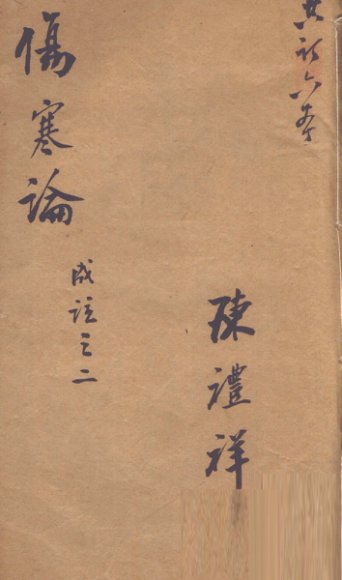 共計六本
陳禮祥
傷寒論
成註之二